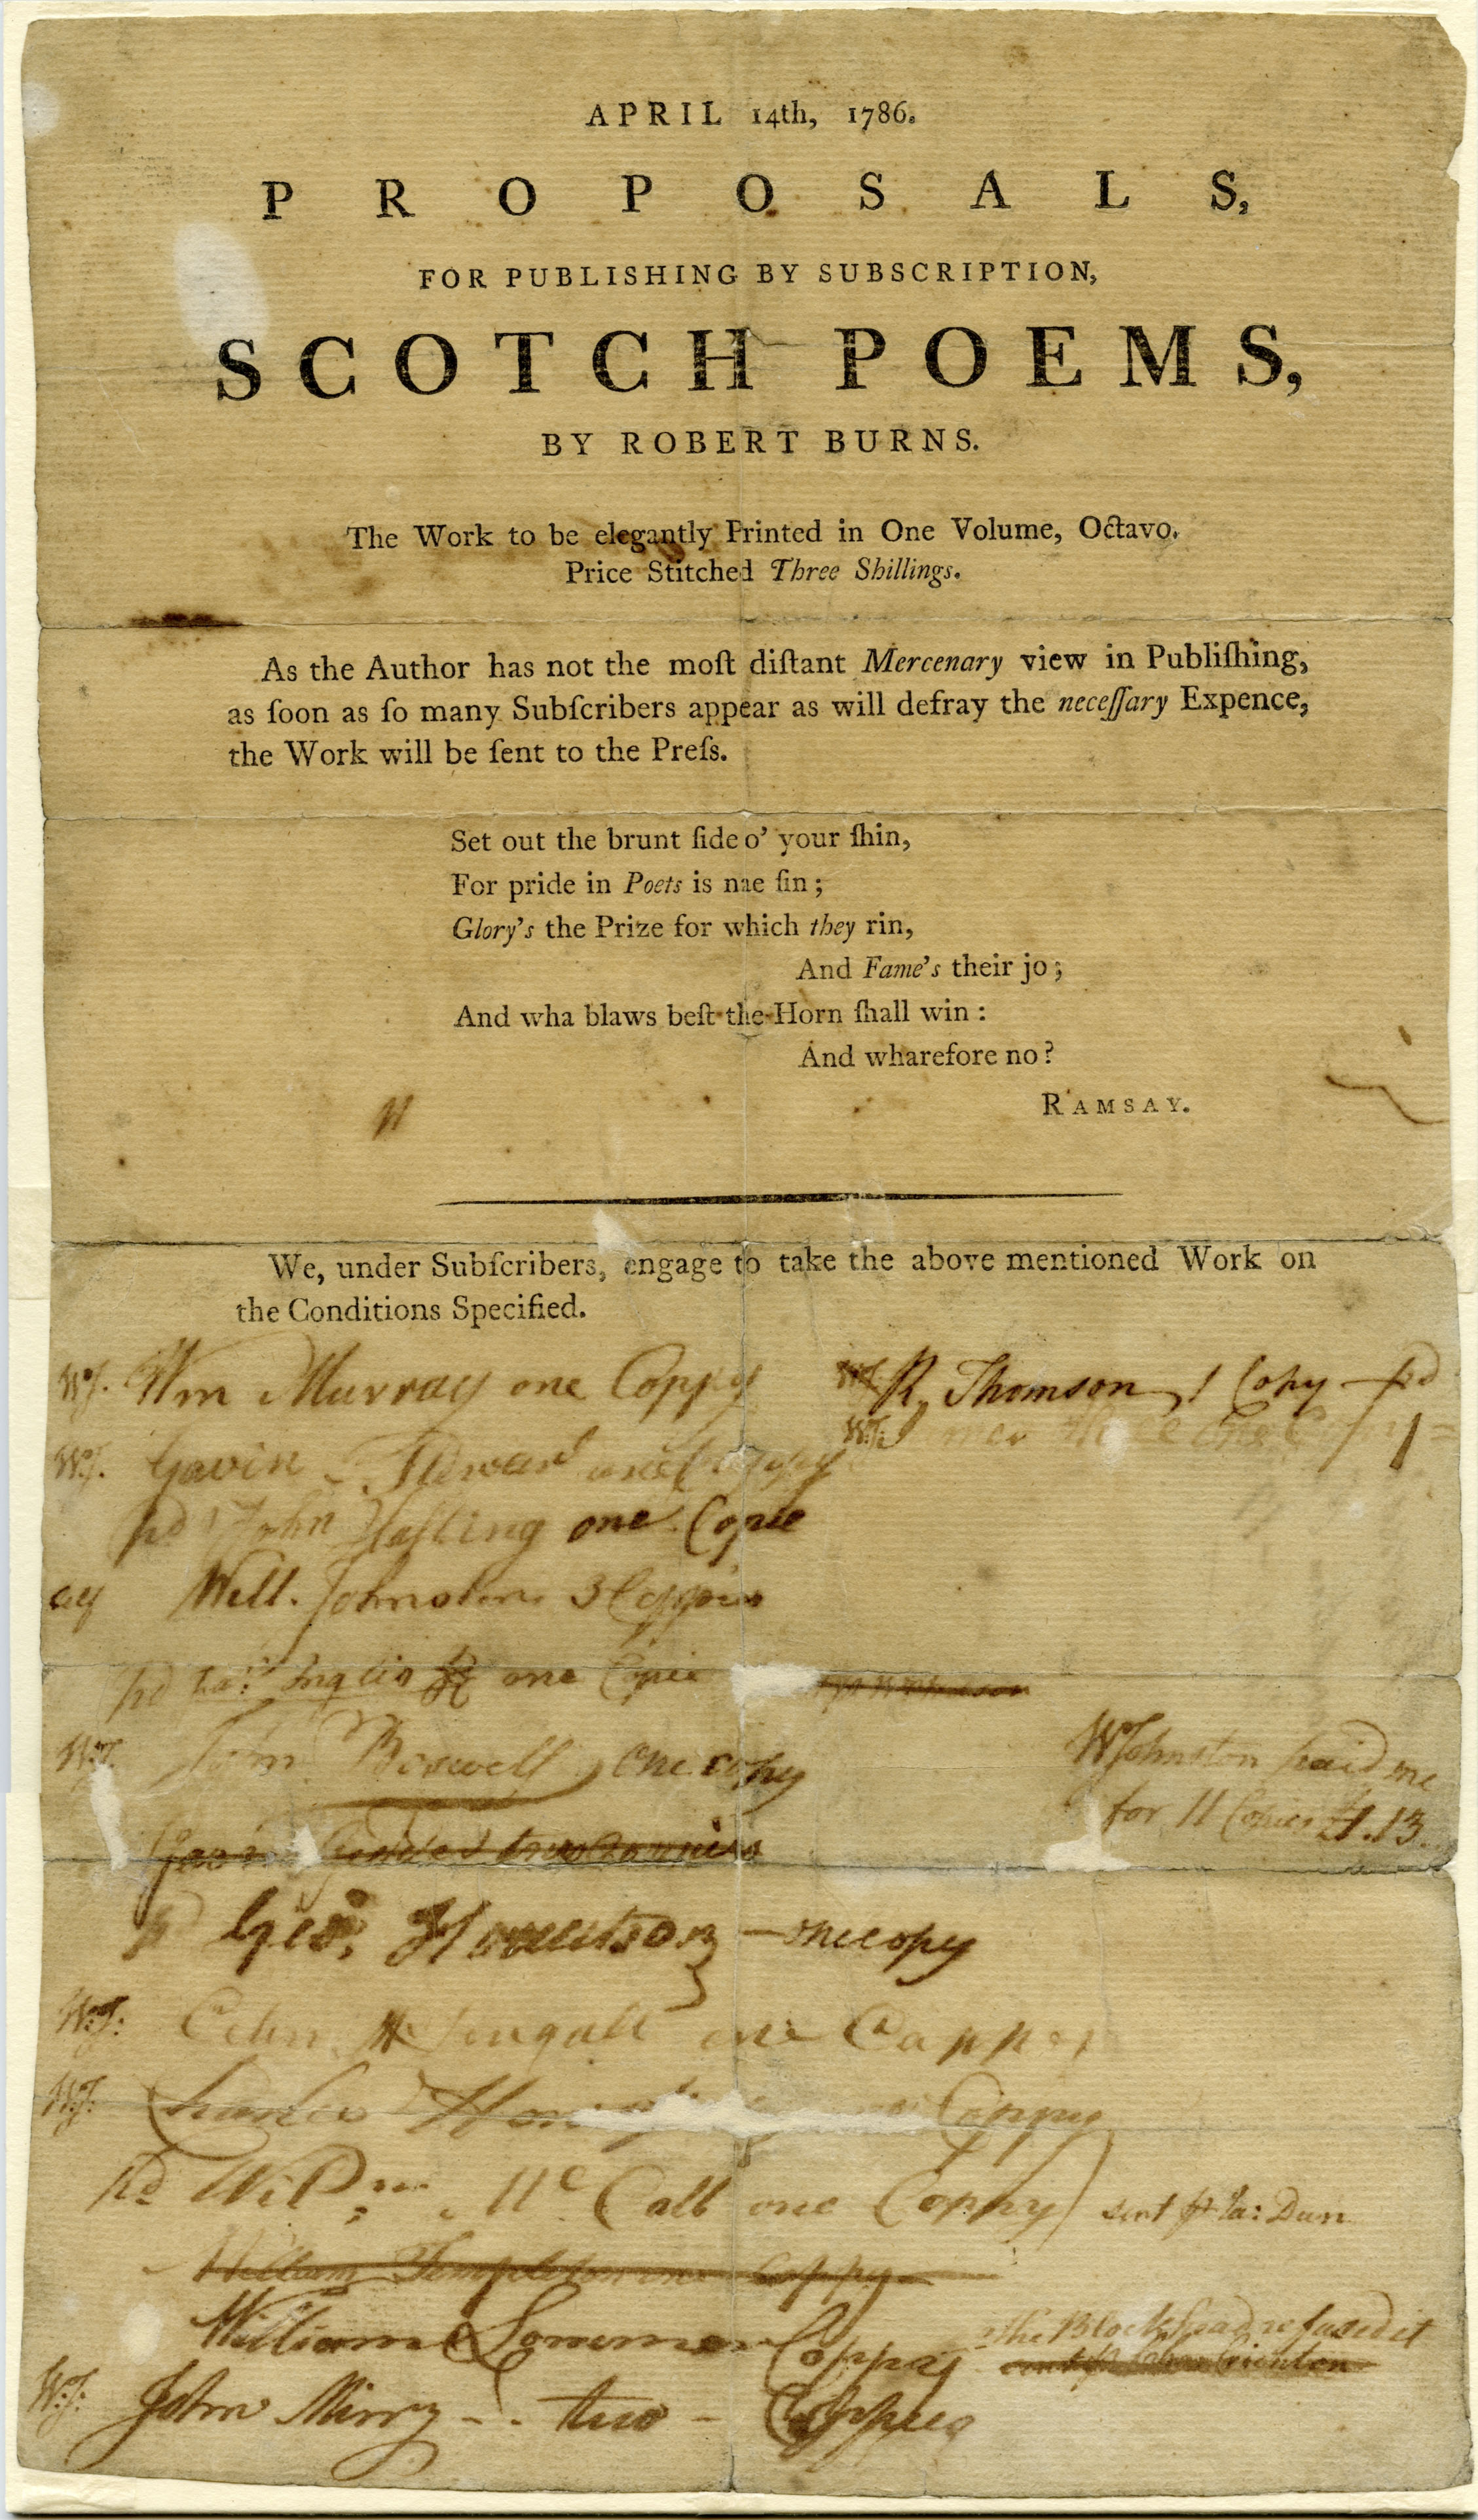 APRIL 14th, 1786.
PROPOSALS,
FOR PUBLISHING BY SUBSCRIPTION,
SCOTCH POEMS,
BY ROBERT BURNS.
The Work to be elegantly Printed in One Volume, Octavo.
Price Stitched Three Shillings.
As the Author has not the moſt diſtant Mercenary view in Publiſhing,
as ſoon as ſo many Subſcribers appear as will defray the neceſſary Expence,
the Work will be ſent to the Preſs.
Set out the brunt ſide o' your ſhin,
For pride in Poets is nae ſin;
Glory's the Prize for which they rin,
And Fame's their jo;
And wha blaws beſt the Horn ſhall win:
And wharefore no?
RAMSAY.
We, under Subſcribers, engage to take the above mentioned Work on
the Conditions Specified.
WJ. Wm Murray one Coppy
R. Thomson 1 Copy pd
WJ. Gavin one Coppy
WJ:
pd John one Copie
Will. Johnston 3 Coppies
pd one Copie
WJ. John Boswell, one copy
WJohnston paid me
for 11 Copies £1.13.
pd Geo. Howitson — one copy
WJ: one Copper
WJ: Charles Coppy
pd Willm Mc Call one Coppy sent pr Ja: Dun
William Templeton one Coppy
William Coppy
the Blockhead refused it
WJ: John Mirry -- two - Coppies